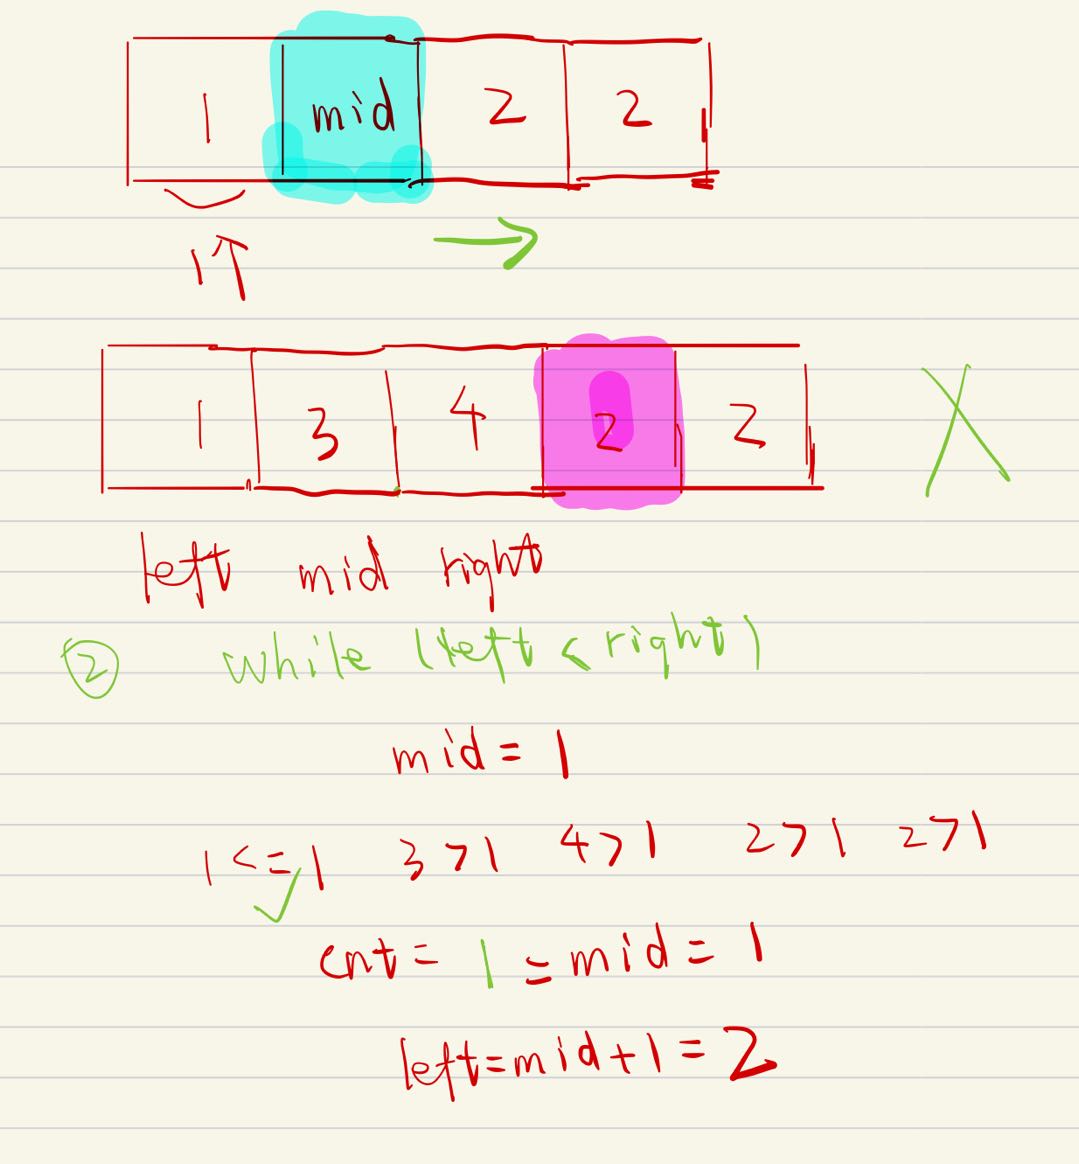 1 mid 2 2
1个
1 3 4 2 2
left mid right
② while (left < right)
mid = 1
1 <= 1 3 > 1 4 > 1 2 > 1 2 > 1
cnt = 1 = mid = 1
left = mid + 1 = 2